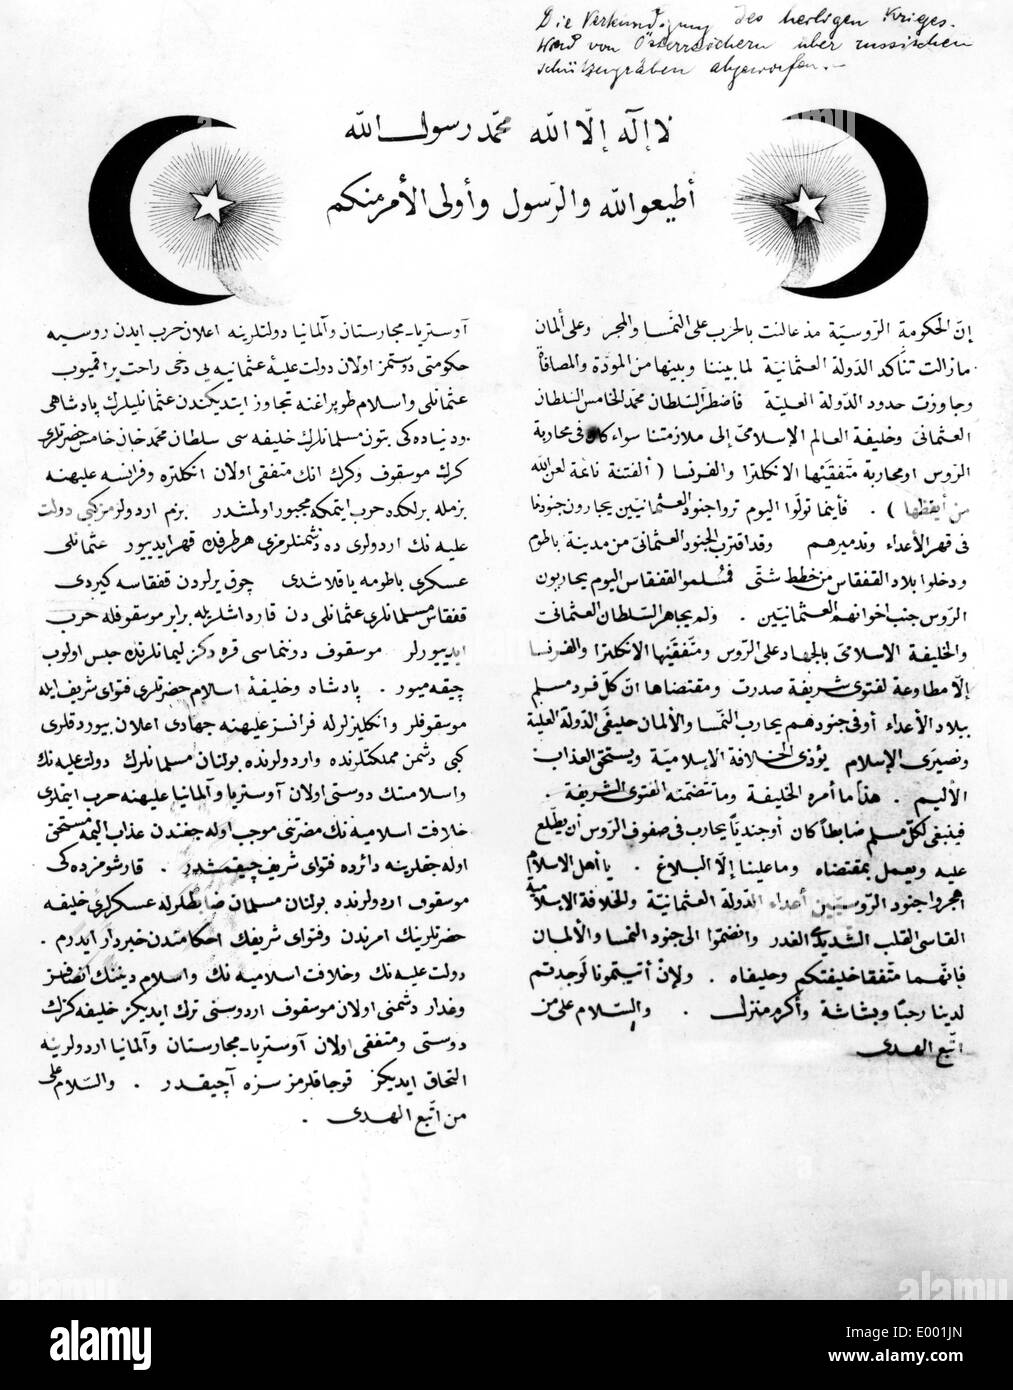 Die Verkündigung des heiligen Krieges.
Wird von Österreichern über russischen
Schützengräben abgeworfen.
لا إله إلّا الله محمّد رسول الله
أطيعوا الله والرّسول وأولى الأمر منكم
إنّ الحكومة الرّوسيّة مذ عالنت بالحرب على النّمسا والمجر وعلى ألمان
مازالت تنأكد الدّولة العثمانيّة لما بيننا وبينها من المودّة والمصافاة
وجاوزت حدود الدّولة العليّة فاضطرّ السّلطان محمّد الخامس السّلطان
العثمانىّ وخليفة العالم الإسلامىّ إلى ملازمتنا سواء كان فى محاربة
الرّوس او محاربة متّفقيها الانكلترا والفرنسا ( ألفتنة نائمة لعن الله
من أيقظها ) . فأينما تولّوا اليوم تروا جنود العثمانيّين يحاربون جنودنا
فى قهر الأعداء وتدميرهم وقد اقترب الجنود العثمانىّ من مدينة باطوم
ودخلوا بلاد القفقاس من خطط شتّى فمسلموا القفقاس اليوم يحاربون
الرّوس جنب اخوانهم العثمانيّين . ولم يجاهر السّلطان العثمانىّ
والخليفة الاسلامىّ بالجهاد على الرّوس ومتّفقيها الانكلترا والفرنسا
إلّا مطاوعة لفتوى شريفة صدرت ومقتضاها انّ كلّ فرد مسلم
ببلاد الأعداء أو فى جنودهم يحارب النّمسا والألمان حليفى الدّولة العليّة
ونصيرى الإسلام يؤذى الخلافة الإسلاميّة ويستحقّ العذاب
الأليم . هذا ما أمره الخليفة وما تتضمّنه الفتوى الشّريفة .
فينبغى لكلّ مسلم ضابطاً كان أو جنديّاً يحارب فى صفوف الرّوس أن يطّلع
عليه ويعمل بمقتضاه وما علينا إلّا البلاغ . يا أهل الاسلام
اهجروا جنود الرّوسيّين أعداء الدّولة العثمانيّة والخلافة الاسلاميّة
القاسى القلب الشديدى الغدر وانضمّوا الى جنود النّمسا والألمان
فإنّهما متّفقا خليفتكم وحليفاه . ولإن أتيتمونا لوجدتم
لدينا رحبًا وبشاشة وأكرم منزل . والسّلام على من
اتّبع الهدى
آوستريا - مجارستان وآلمانيا دولتلرينه اعلان حرب ايدن روسيه
حكومتى دوستمز اولان دولت عليۀ عثمانيه يى دخى راحت براقميوب
عثمانلى واسلام طوپراغنه تجاوز ايتديكندن عثمانليلرك پادشاهى
ودنياده كى بتون مسلمانلرك خليفه سى سلطان محمّد خان خامس حضرتلرى
كرك موسقوف وكرك انك متفقى اولان انكلتره وفرانسه عليهنه
بزمله برلكده حرب ايتمكه مجبور اولمشدر بزم اردولرمز كبى دولت
عليه نك اردولرى ده دشمنلرمزى هر طرفده قهر ايدييور عثمانلى
عسكرى باطومه ياقلاشدى چوق يرلردن قفقاسه كيردى
قفقاس مسلمانلرى عثمانلى دن قارداشلريله برابر موسقوفله حرب
ايدييورلر موسقوف دونانماسى قره دكز ليمانلرنده حبس اولوب
چيقه ميور . پادشاه وخليفۀ اسلام حضرتلرى فتواى شريف ايله
موسقوفلر وانكليزلرله فرانسز عليهنه جهادى اعلان بيوردقلرى
كبى دشمن مملكتلرنده واردولرنده بولنان مسلمانلرك دولت عليه نك
واسلامتك دوستى اولان آوستريا وآلمانيا عليهنه حرب ايتملرى
خلافت اسلاميه نك مضرتنى موجب اوله جغندن عذاب اليمه مستحق
اوله جقلرينه دائره فتواى شريف چيقمشدر . قارشومزده كى
موسقوف اردولرنده بولنان مسلمان ضابطلرله عسكرلرى خليفه
حضرتلرينك امرندن وفتواى شريفك احكامندن خبردار ايدرم .
دولت عليه نك وخلافت اسلاميه نك واسلام دينك
وغدار دشمنى اولان موسقوف اردوسنى ترك ايديكز خليفه كزك
دوستى ومتفقى اولان آوستريا - مجارستان وآلمانيا اردولرينه
التحاق ايديكز قوجاقلرمز سزه آچيقدر . والسّلام على
من اتّبع الهدى .
alamy
alamy
alamy
E001JN
www.alamy.com